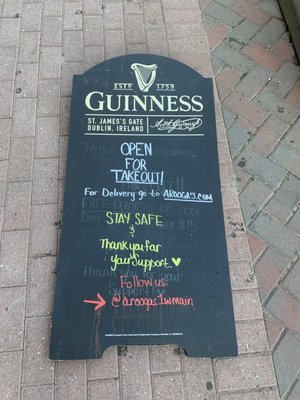 GUINNESS
ESTD 1759
GUINNESS
ST. JAMES'S GATE
DUBLIN, IRELAND
OPEN
FOR
TAKEOUT!
For Delivery go to AROOGA'S.COM
STAY SAFE
&
Thank you for
your Support
Follow us:
@aroogas1wmain